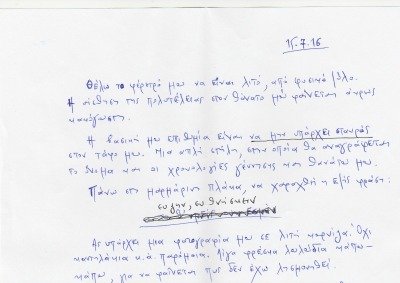 15.7.16
Θέλω το φέρετρό μου να είναι λιτό, από φυσικό ξύλο.
Η αίσθηση της πολυτέλειας στον θάνατο μου φαίνεται άκρως
κακόγουστη.
Η βασική μου επιθυμία είναι να μην υπάρχει σταυρός
στον τάφο μου. Μια απλή στήλη, στην οποία θα αναγράφεται
το όνομα και οι χρονολογίες γέννησης και θανάτου μου.
Πάνω στη μαρμάρινη πλάκα, να χαραχθή η εξής φράση:
Ας υπάρχει μια φωτογραφία μου σε λιτή κορνίζα. Όχι
καντηλάκια κ.ά. παρόμοια. Λίγα φρέσκα λουλούδια κάπου-
κάπου, για να φαίνεται πως δεν έχω λησμονηθεί.